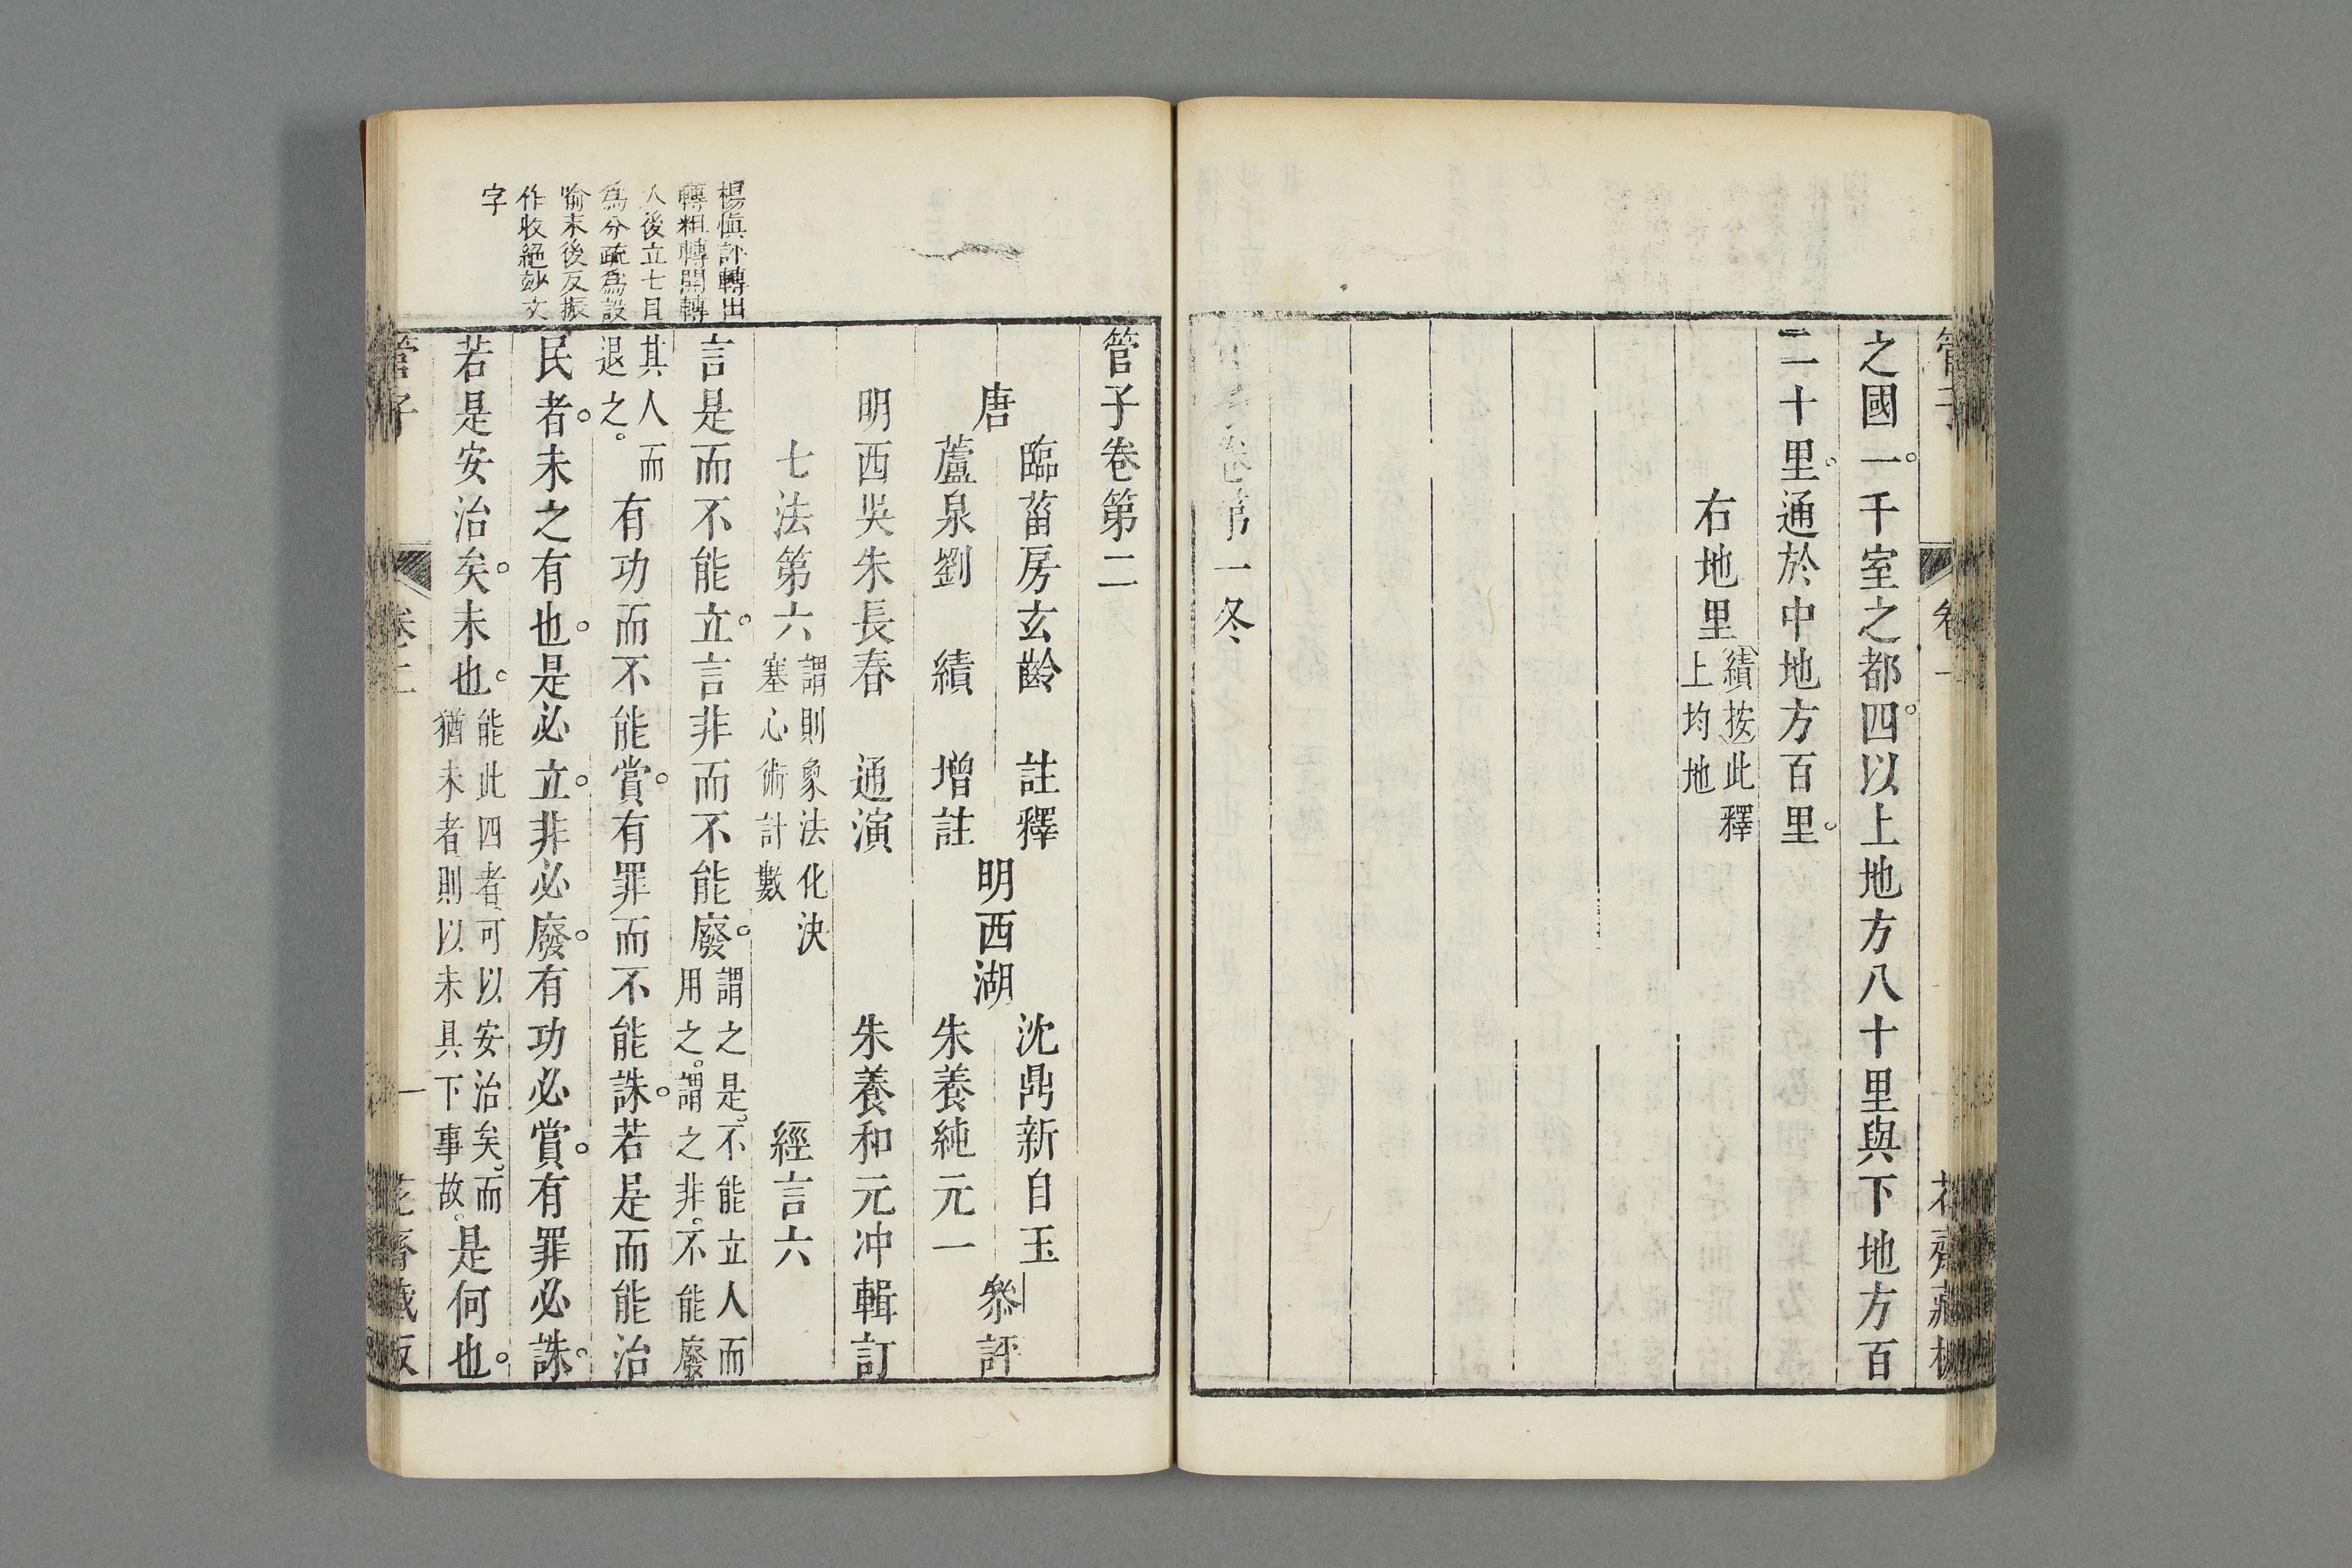 之國一。千室之都四。以上地方八十里與下地方百
二十里。通於中地方百里。
右地里績按此釋
上均地
管子卷第一冬
管子卷第二
唐
臨菑房玄齡 註釋
蘆泉劉 績 增註
明西湖
沈鼎新自玉
朱養純元一
參評
明西吳朱長春 通演
朱養和元冲輯訂
七法第六
謂則象法化決
塞心術計數
經言六
言是而不能立。言非而不能廢。
謂之是。不能立人而
用之。謂之非。不能廢
其人而
退之。
有功而不能賞。有罪而不能誅。若是而能治
民者。未之有也。是必立。非必廢。有功必賞。有罪必誅。
若是安治矣。未也。
能此四者可以安治矣。而
猶未者則以未具下事故。
是何也。
楊慎評轉出
轉粗轉開轉
入後立七目
為分疏為設
喻末後反振
作收絕妙文
字
管子
卷二
一
花齋藏板